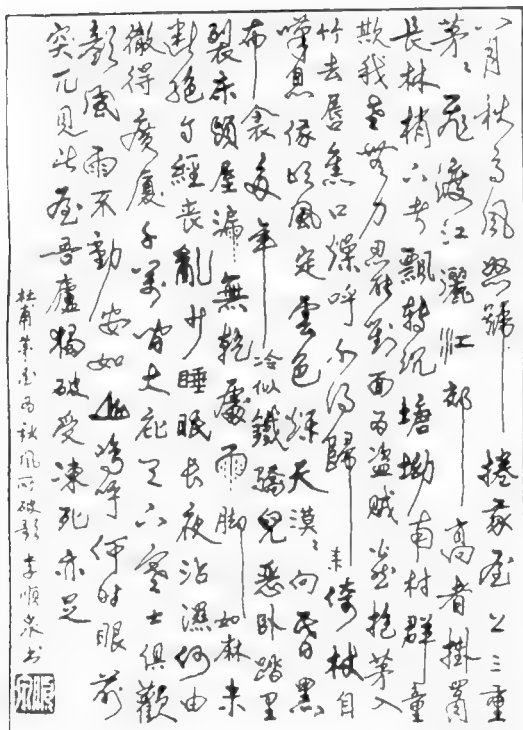 八月秋高風怒號捲我屋上三重
茅々飛渡江灑江郊高者掛罥
長林梢下者飄轉沉塘坳南村群童
欺我老無力忍能對面為盜賊公然抱茅入
竹去唇焦口燥呼不得歸來倚杖自
嘆息俄頃風定雲色秋天漠々向昏黑
布衾多年冷似鐵驕兒惡卧踏里
裂床頭屋漏無乾處雨脚如麻未
斷絕自經喪亂少睡眠長夜沾濕何由
徹得廣厦千萬間大庇天下寒士俱歡
顏風雨不動安如山嗚呼何時眼前
突兀見此屋吾廬獨破受凍死亦足
杜甫茅屋為秋風所破歌 李順泉書